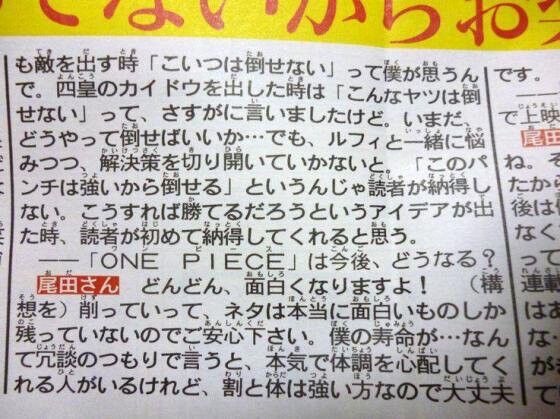 も敵を出す時「こいつは倒せない」って僕が思うん
で。四皇のカイドウを出した時は「こんなヤツは倒
せない」って、さすがに言いましたけど。いまだ、
どうやって倒せばいいか…でも、ルフィと一緒に悩
みつつ、解決策を切り開いていかないと。「このパ
ンチは強いから倒せる」というんじゃ読者が納得し
ない。こうすれば勝てるだろうというアイデアが出
た時、読者が初めて納得してくれると思う。
――「ONE PIECE」は今後、どうなる?
尾田さん どんどん、面白くなりますよ! (構
想を)削っていって、ネタは本当に面白いものしか
残っていないのでご安心下さい。僕の寿命が…なん
て冗談のつもりで言うと、本気で体調を心配してく
れる人がいるけれど、割と体は強い方なので大丈夫
です。
で上映
尾田
ね。
たから
後は
なく
連載